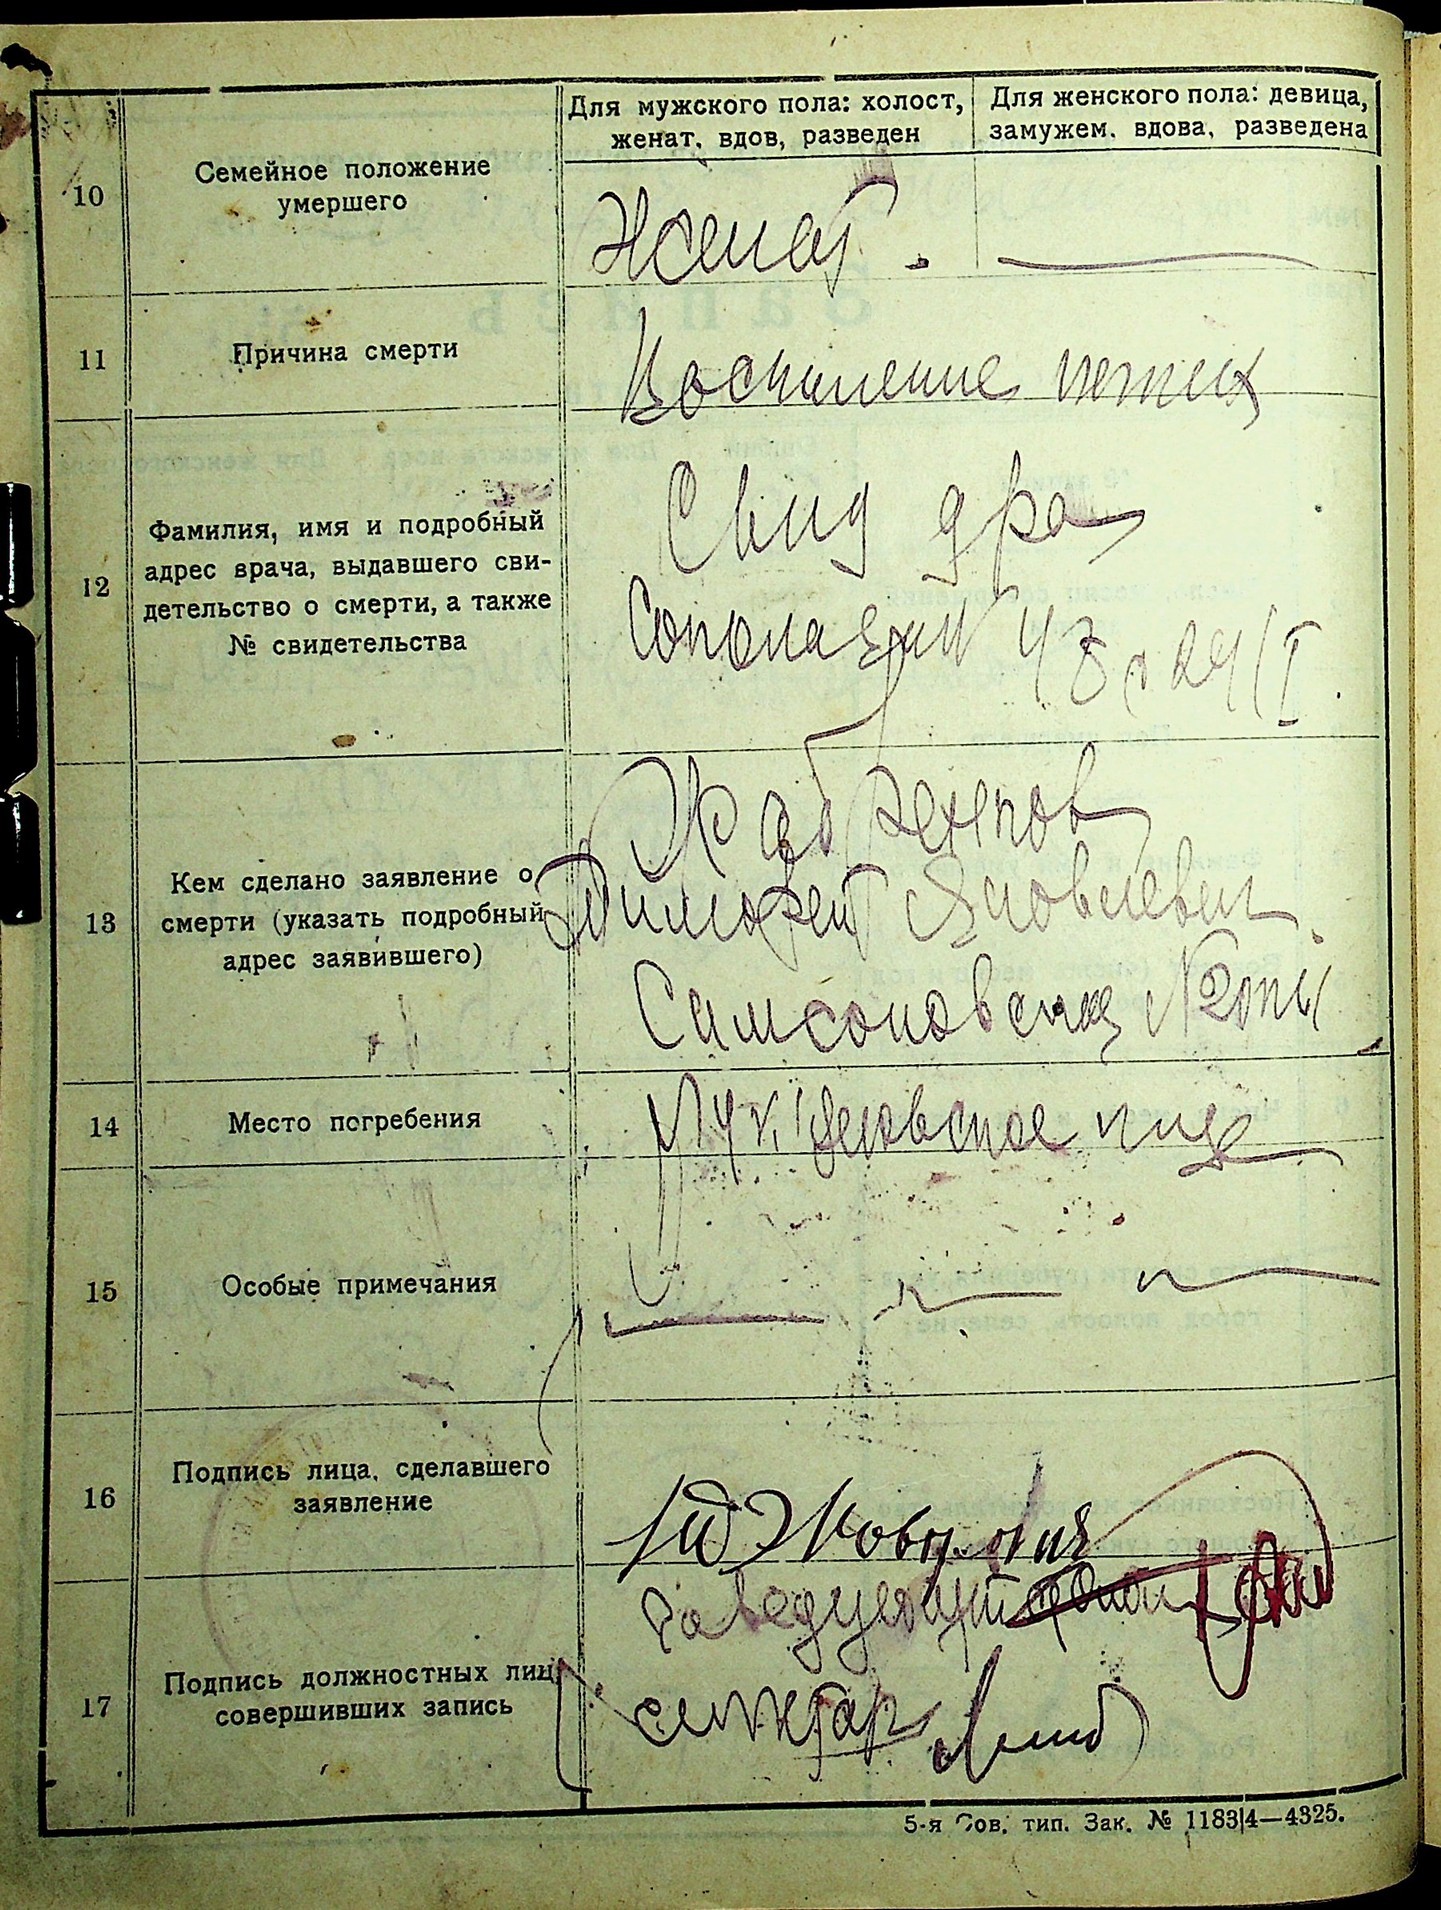 Для мужского пола: холост,
женат, вдов, разведен
Для женского пола: девица,
замужем, вдова, разведена
10
Семейное положение
умершего
Женат.
11
Причина смерти
Воспаление легких
12
Фамилия, имя и подробный
адрес врача, выдавшего сви-
детельство о смерти, а также
№ свидетельства
Свид д-ра
13
Кем сделано заявление о
смерти (указать подробный
адрес заявившего)
Тимофей Яковлевич
Самсоновская №
14
Место погребения
15
Особые примечания
16
Подпись лица, сделавшего
заявление
17
Подпись должностных лиц,
совершивших запись
Заведующий
секретар
5-я Сов. тип. Зак. № 1183|4—4325.